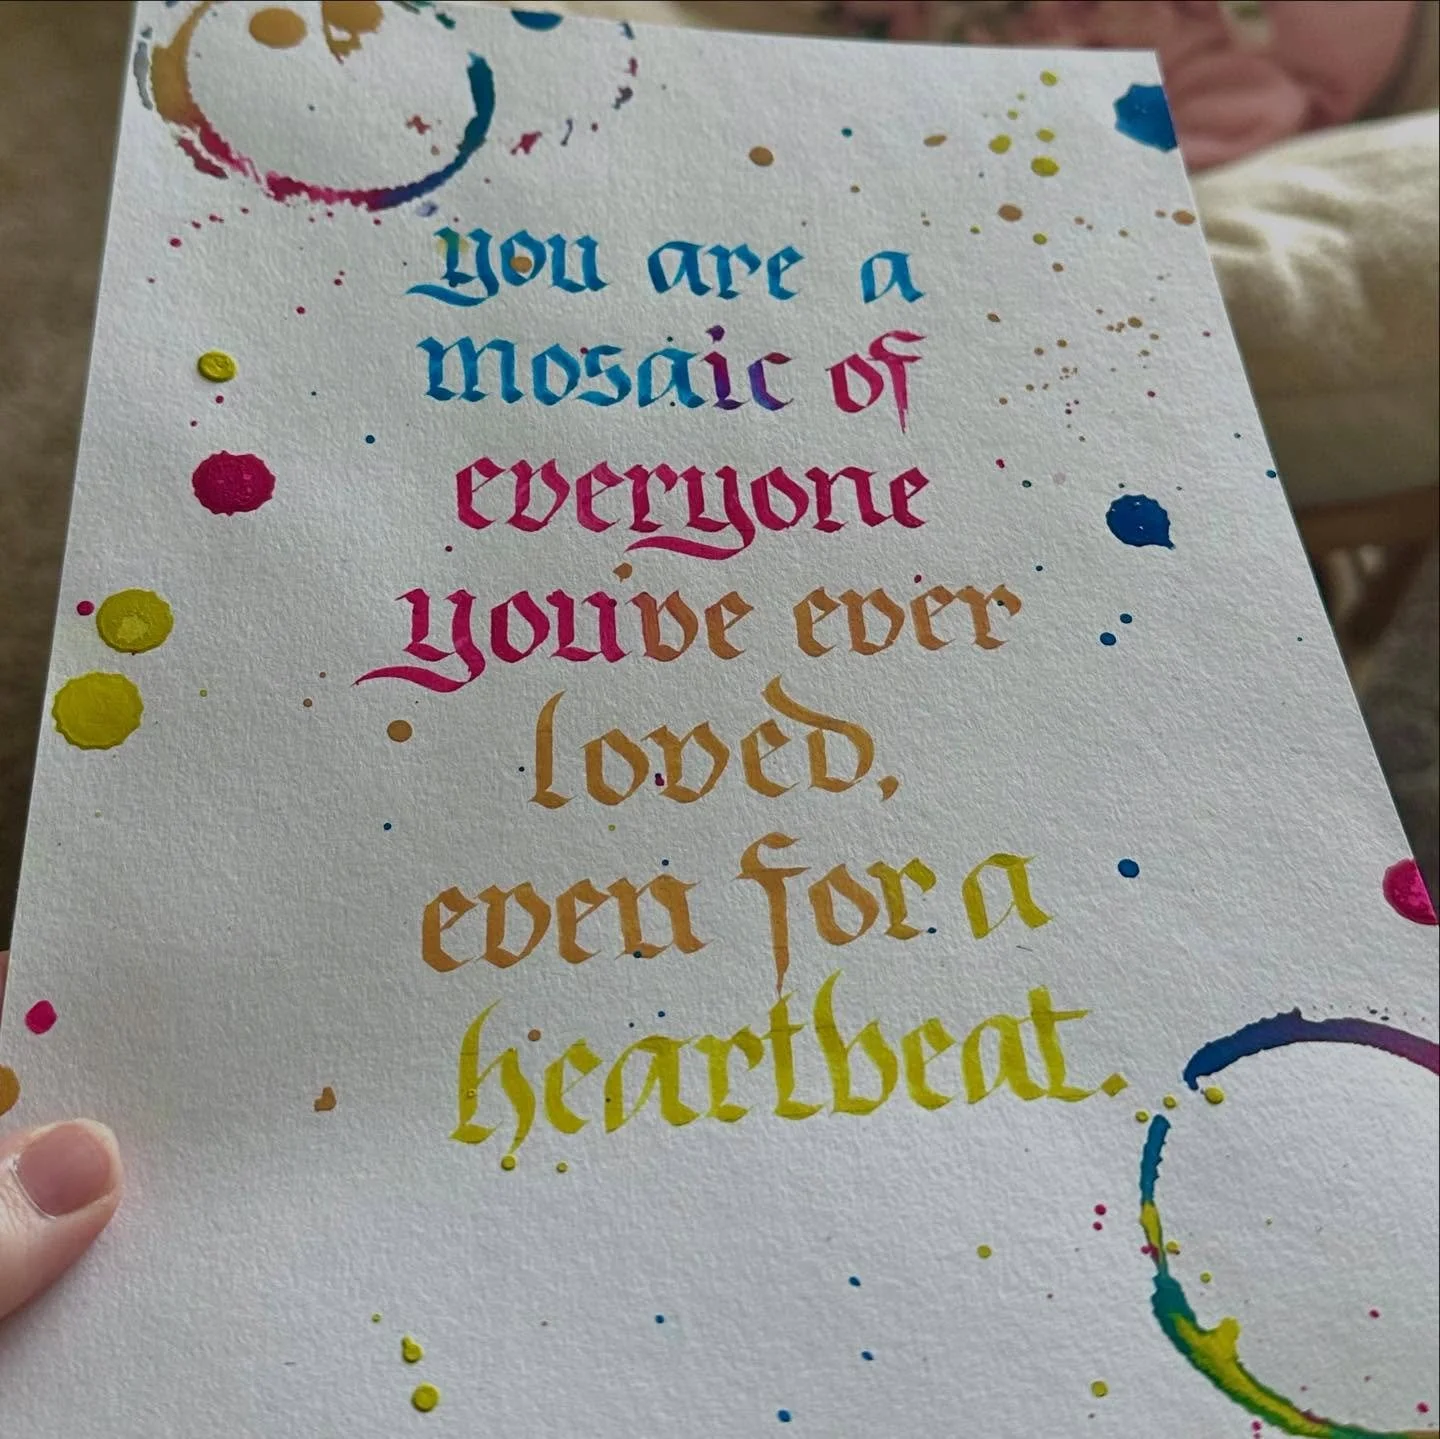 you are a
mosaic of
everyone
you've ever
loved,
even for a
heartbeat.